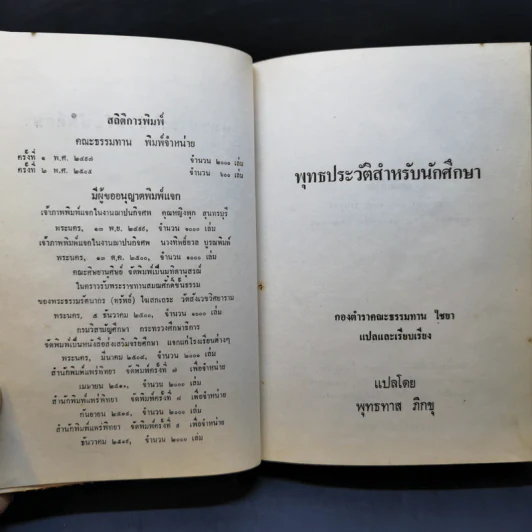 สถิติการพิมพ์
คณะธรรมทาน พิมพ์จำหน่าย
ครั้งที่ ๑ พ.ศ. ๒๔๘๗ จำนวน ๒๐๐๐ เล่ม
ครั้งที่ ๒ พ.ศ. ๒๕๐๕ จำนวน ๖๐๐ เล่ม
มีผู้ขออนุญาตพิมพ์แจก
เจ้าภาพพิมพ์แจกในงานฌาปนกิจศพ คุณหญิงพุก สุนทรบุรี
พระนคร, ๑๓ พ.ย. ๒๔๙๙, จำนวน ๑๐๐๐ เล่ม
เจ้าภาพพิมพ์แจกในงานฌาปนกิจศพ นางทิพย์อวล บูรณพิมพ์
พระนคร, ๑๓ ต.ค. ๒๕๐๐, จำนวน ๑๐๐๐ เล่ม
คณะศิษยานุศิษย์ จัดพิมพ์เป็นมุทิตานุสรณ์
ในคราวรับพระราชทานสมณศักดิ์ชั้นธรรม
ของพระธรรมรัตนากร (ทรัพย์) โฆสกเถระ วัดสังเวชวิศยาราม
พระนคร, ๕ ธันวาคม ๒๕๐๐, จำนวน ๑๐๐๐ เล่ม
กรมวิสามัญศึกษา กระทรวงศึกษาธิการ
จัดพิมพ์เป็นหนังสือส่งเสริมจริยศึกษา แจกแก่โรงเรียนต่างๆ
พระนคร, มีนาคม ๒๕๐๔, จำนวน ๒๐๐๐ เล่ม
สำนักพิมพ์แพร่พิทยา จัดพิมพ์ครั้งที่ ๗ เพื่อจำหน่าย
เมษายน ๒๕๑๐, จำนวน ๒๐๐๐ เล่ม
สำนักพิมพ์แพร่พิทยา จัดพิมพ์ครั้งที่ ๘ เพื่อจำหน่าย
กันยายน ๒๕๑๔, จำนวน ๒๐๐๐ เล่ม
สำนักพิมพ์แพร่พิทยา จัดพิมพ์ครั้งที่ ๙ เพื่อจำหน่าย
ธันวาคม ๒๕๑๙, จำนวน ๒๐๐๐ เล่ม
พุทธประวัติสำหรับนักศึกษา
กองตำราคณะธรรมทาน ไชยา
แปลและเรียบเรียง
แปลโดย
พุทธทาส ภิกขุ